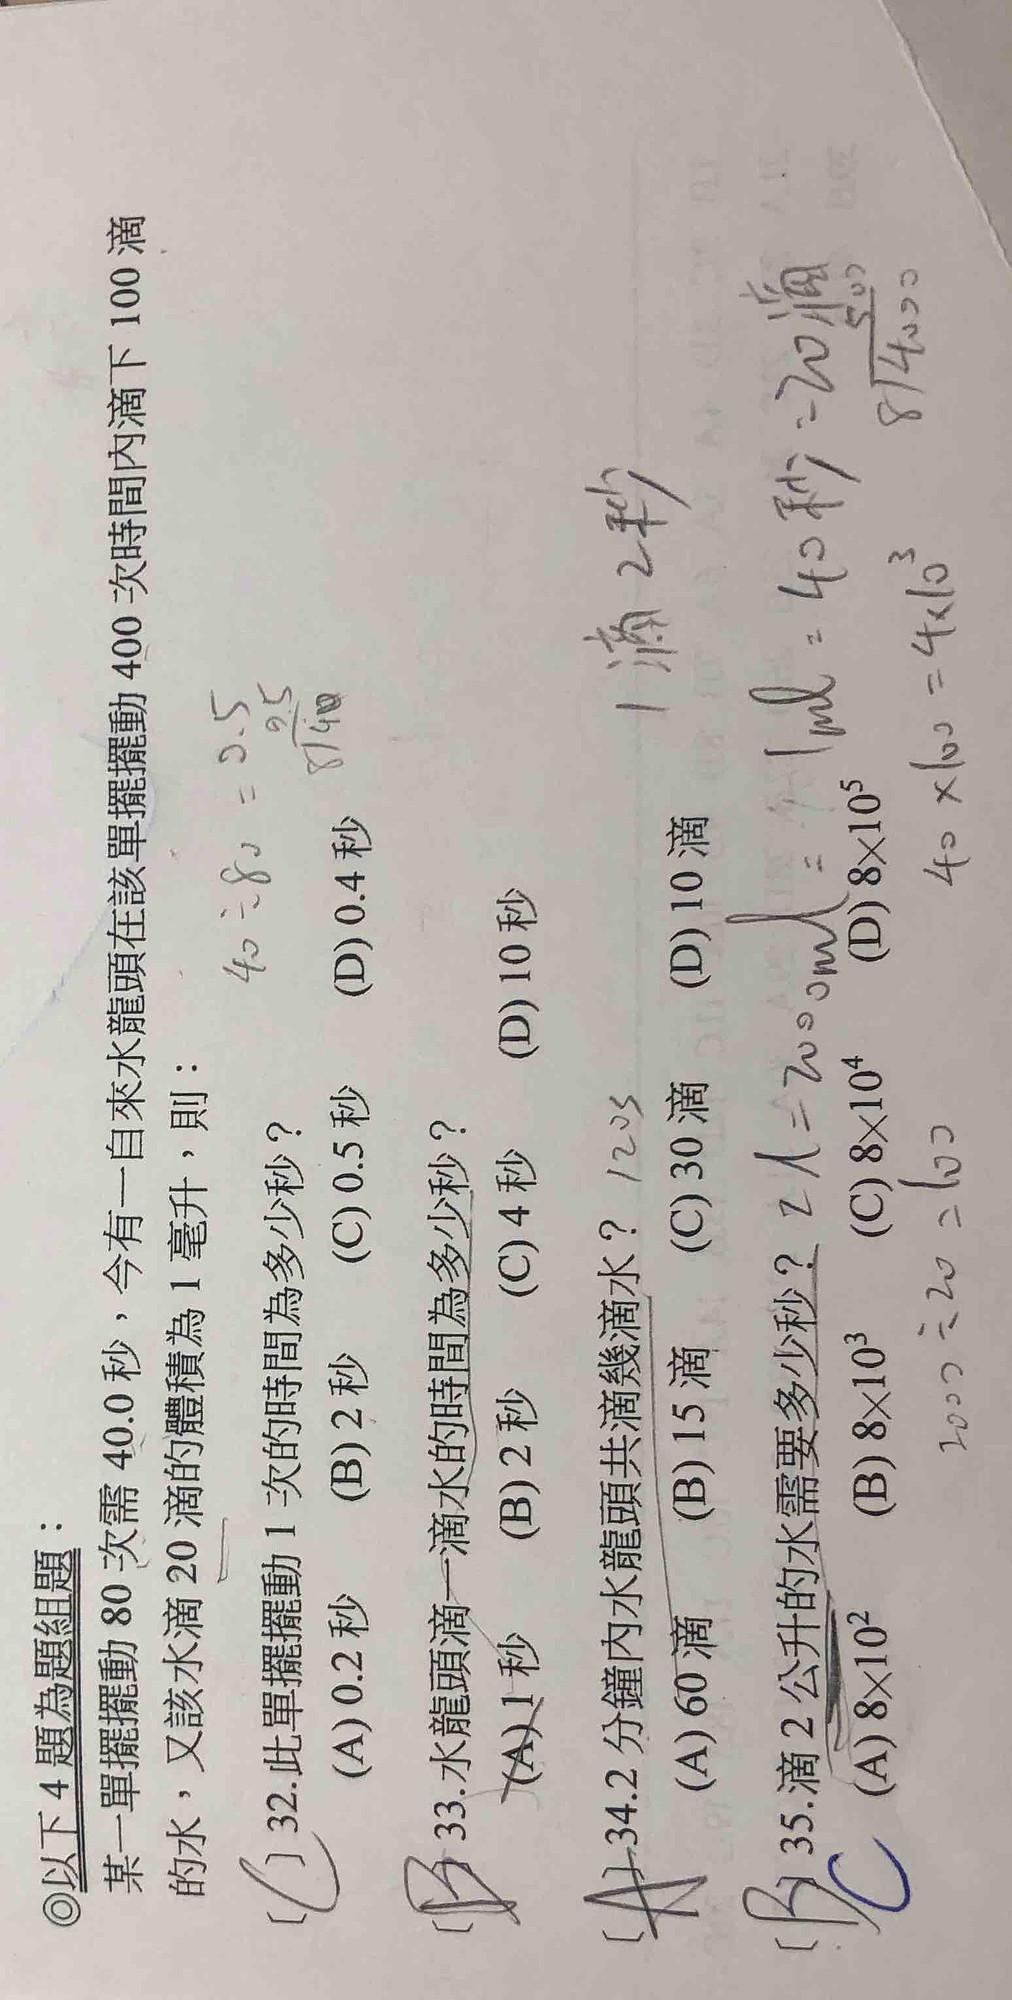 ◎以下 4 題為題組題：
某一單擺擺動 80 次需 40.0 秒，今有一自來水龍頭在該單擺擺動 400 次時間內滴下 100 滴
的水，又該水滴 20 滴的體積為 1 毫升，則：
40÷80=0.5
0.5
8/40
〔C〕32.此單擺擺動 1 次的時間為多少秒？
(A) 0.2 秒 (B) 2 秒 (C) 0.5 秒 (D) 0.4 秒
〔B〕33.水龍頭滴一滴水的時間為多少秒？
(A) 1 秒 (B) 2 秒 (C) 4 秒 (D) 10 秒
1滴2秒
〔A〕34.2 分鐘內水龍頭共滴幾滴水？ 120s
(A) 60 滴 (B) 15 滴 (C) 30 滴 (D) 10 滴
〔B〕35.滴 2 公升的水需要多少秒？ 2l=2000ml= 1ml=40秒=20滴
C
(A) 8×10² (B) 8×10³ (C) 8×10⁴ (D) 8×10⁵
500
8/4000
2000÷20=100 40×100=4×10³